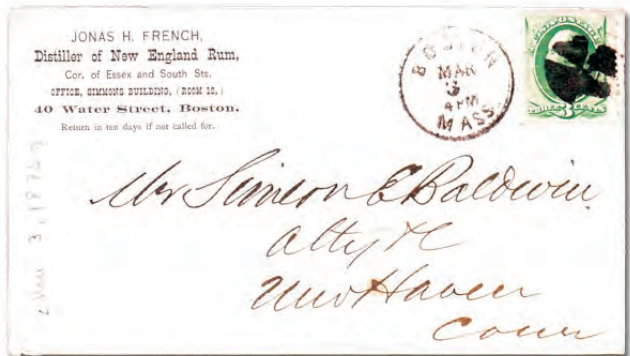 JONAS H. FRENCH,
Distiller of New England Rum,
Cor. of Essex and South Sts.
OFFICE, SIMMONS BUILDING, (ROOM 12,)
40 Water Street, Boston.
Return in ten days if not called for.
BOSTON
MAR
3
4 PM
MASS.
THREE 3 CENTS
Mr Simeon E Baldwin
Atty &c
New Haven
Conn